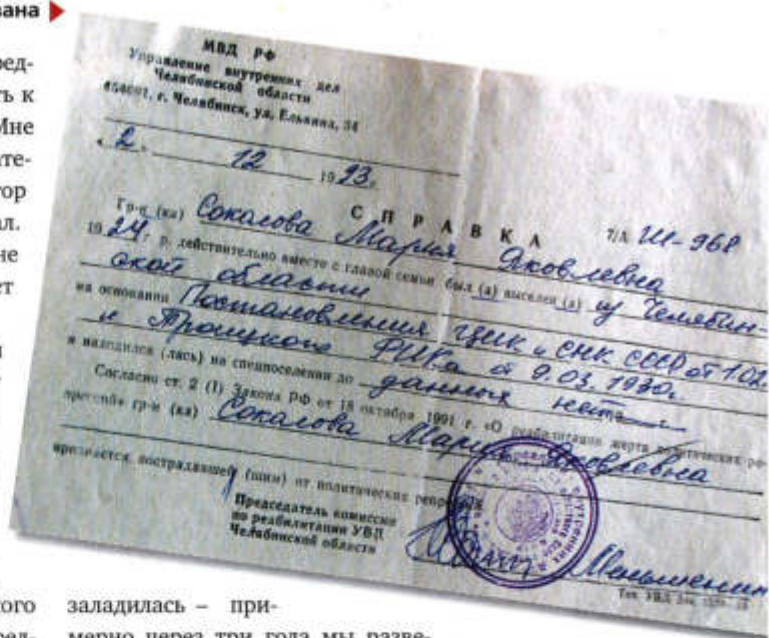 вана
ред-
ть к
Мне
ате-
тор
ал.
не
ет
МВД РФ
Управление внутренних дел
Челябинской области
454091, г. Челябинск, ул. Елькина, 34
« 2 » 12 1993 г.
СПРАВКА 7/А Ш-968
Гр-н (ка) Сокалова Мария Яковлевна
1924 г. р. действительно вместе с главой семьи был (а) выселен (а) из Челябин-
ской области
на основании Постановления ЦИК и СНК СССР от 1.02.
и Троицкого РИКа от 9.03. 1930г.
и находился (лась) на спецпоселении до данных нет
Согласно ст. 2 (1) Закона РФ от 18 октября 1991 г. «О реабилитации жертв политических ре-
прессий» гр-н (ка) Сокалова Мария Яковлевна
признается пострадавшей (шим) от политических репрессий.
Председатель комиссии
по реабилитации УВД
Челябинской области
ого заладилась – при-
ред- мерно через три года мы разве-